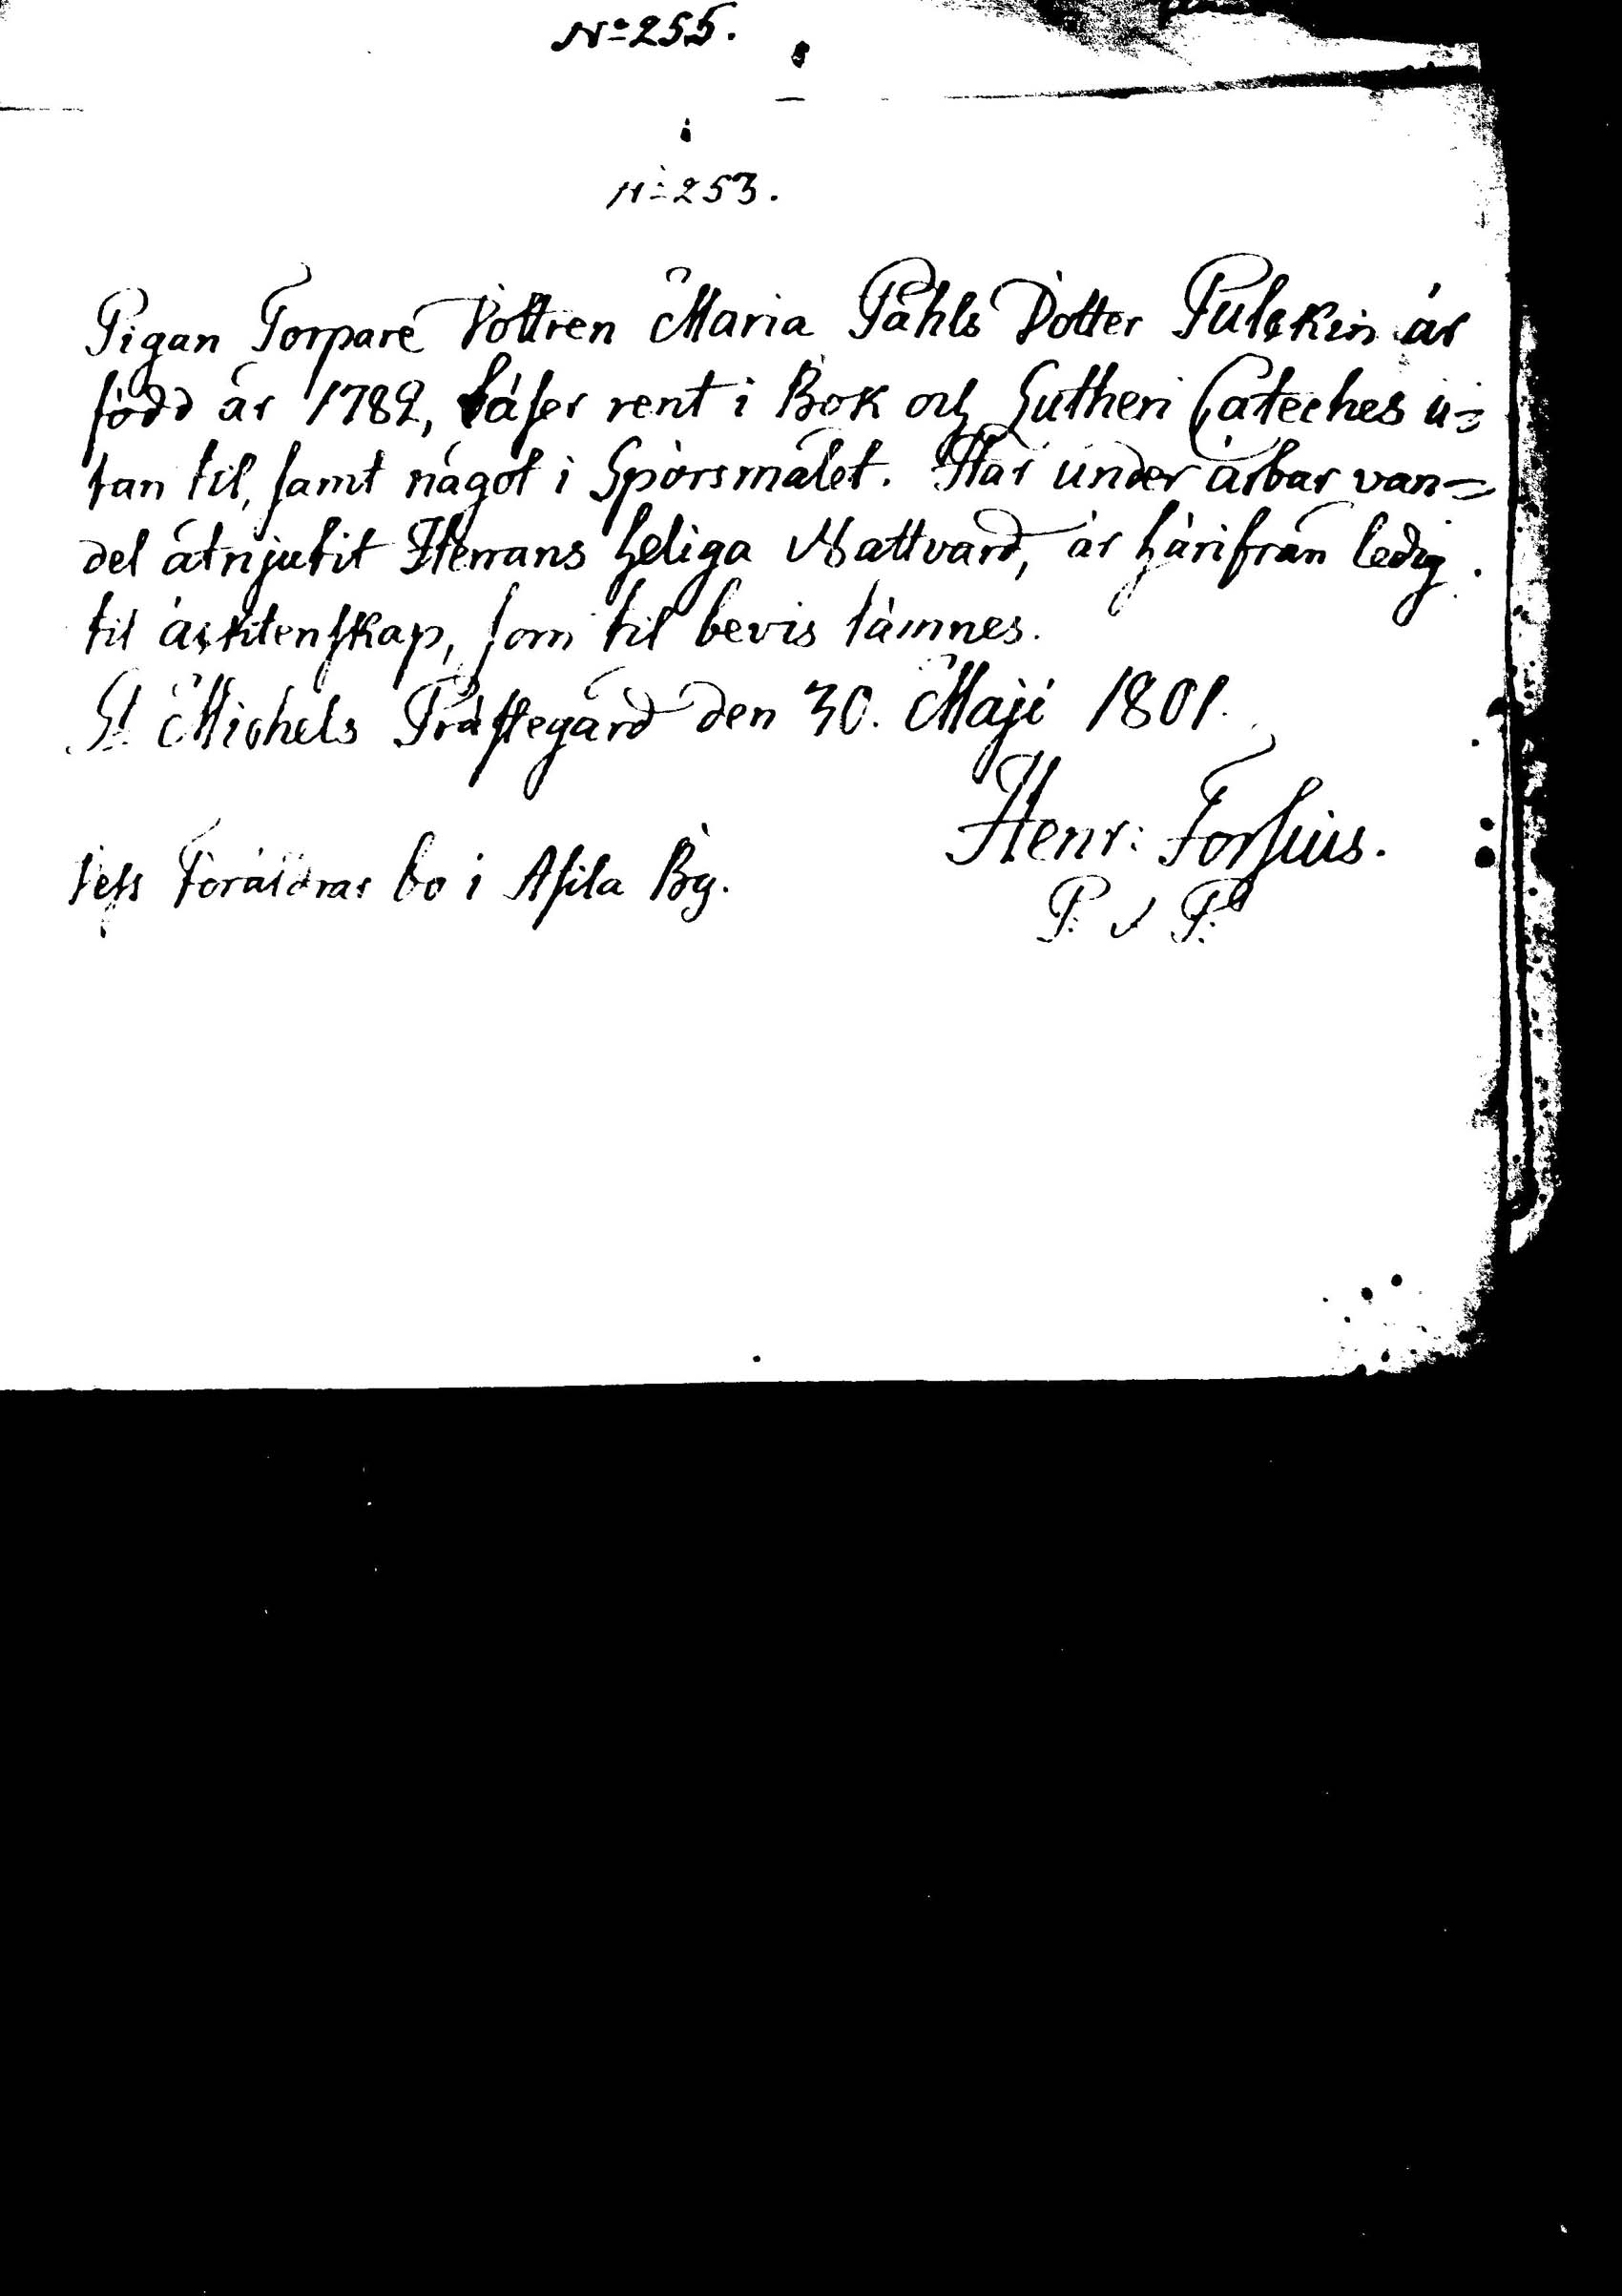 No 255.
No 253.
Pigan Torpare Dottren Maria Påhls Dotter Pulkkin är
född år 1782, läser rent i Bok och Lutheri Cateches u=
tan til, samt något i Spörsmålet. Har under ärbar van=
del åtnjutit Herrans heliga Nattvard, är härifrån ledig
til äcktenskap, som til bevis lämnes.
St Michels Prästegård den 30. Maji 1801.
Henr: Forsius.
P. v P.
Dess Föräldrar bo i Asila By.